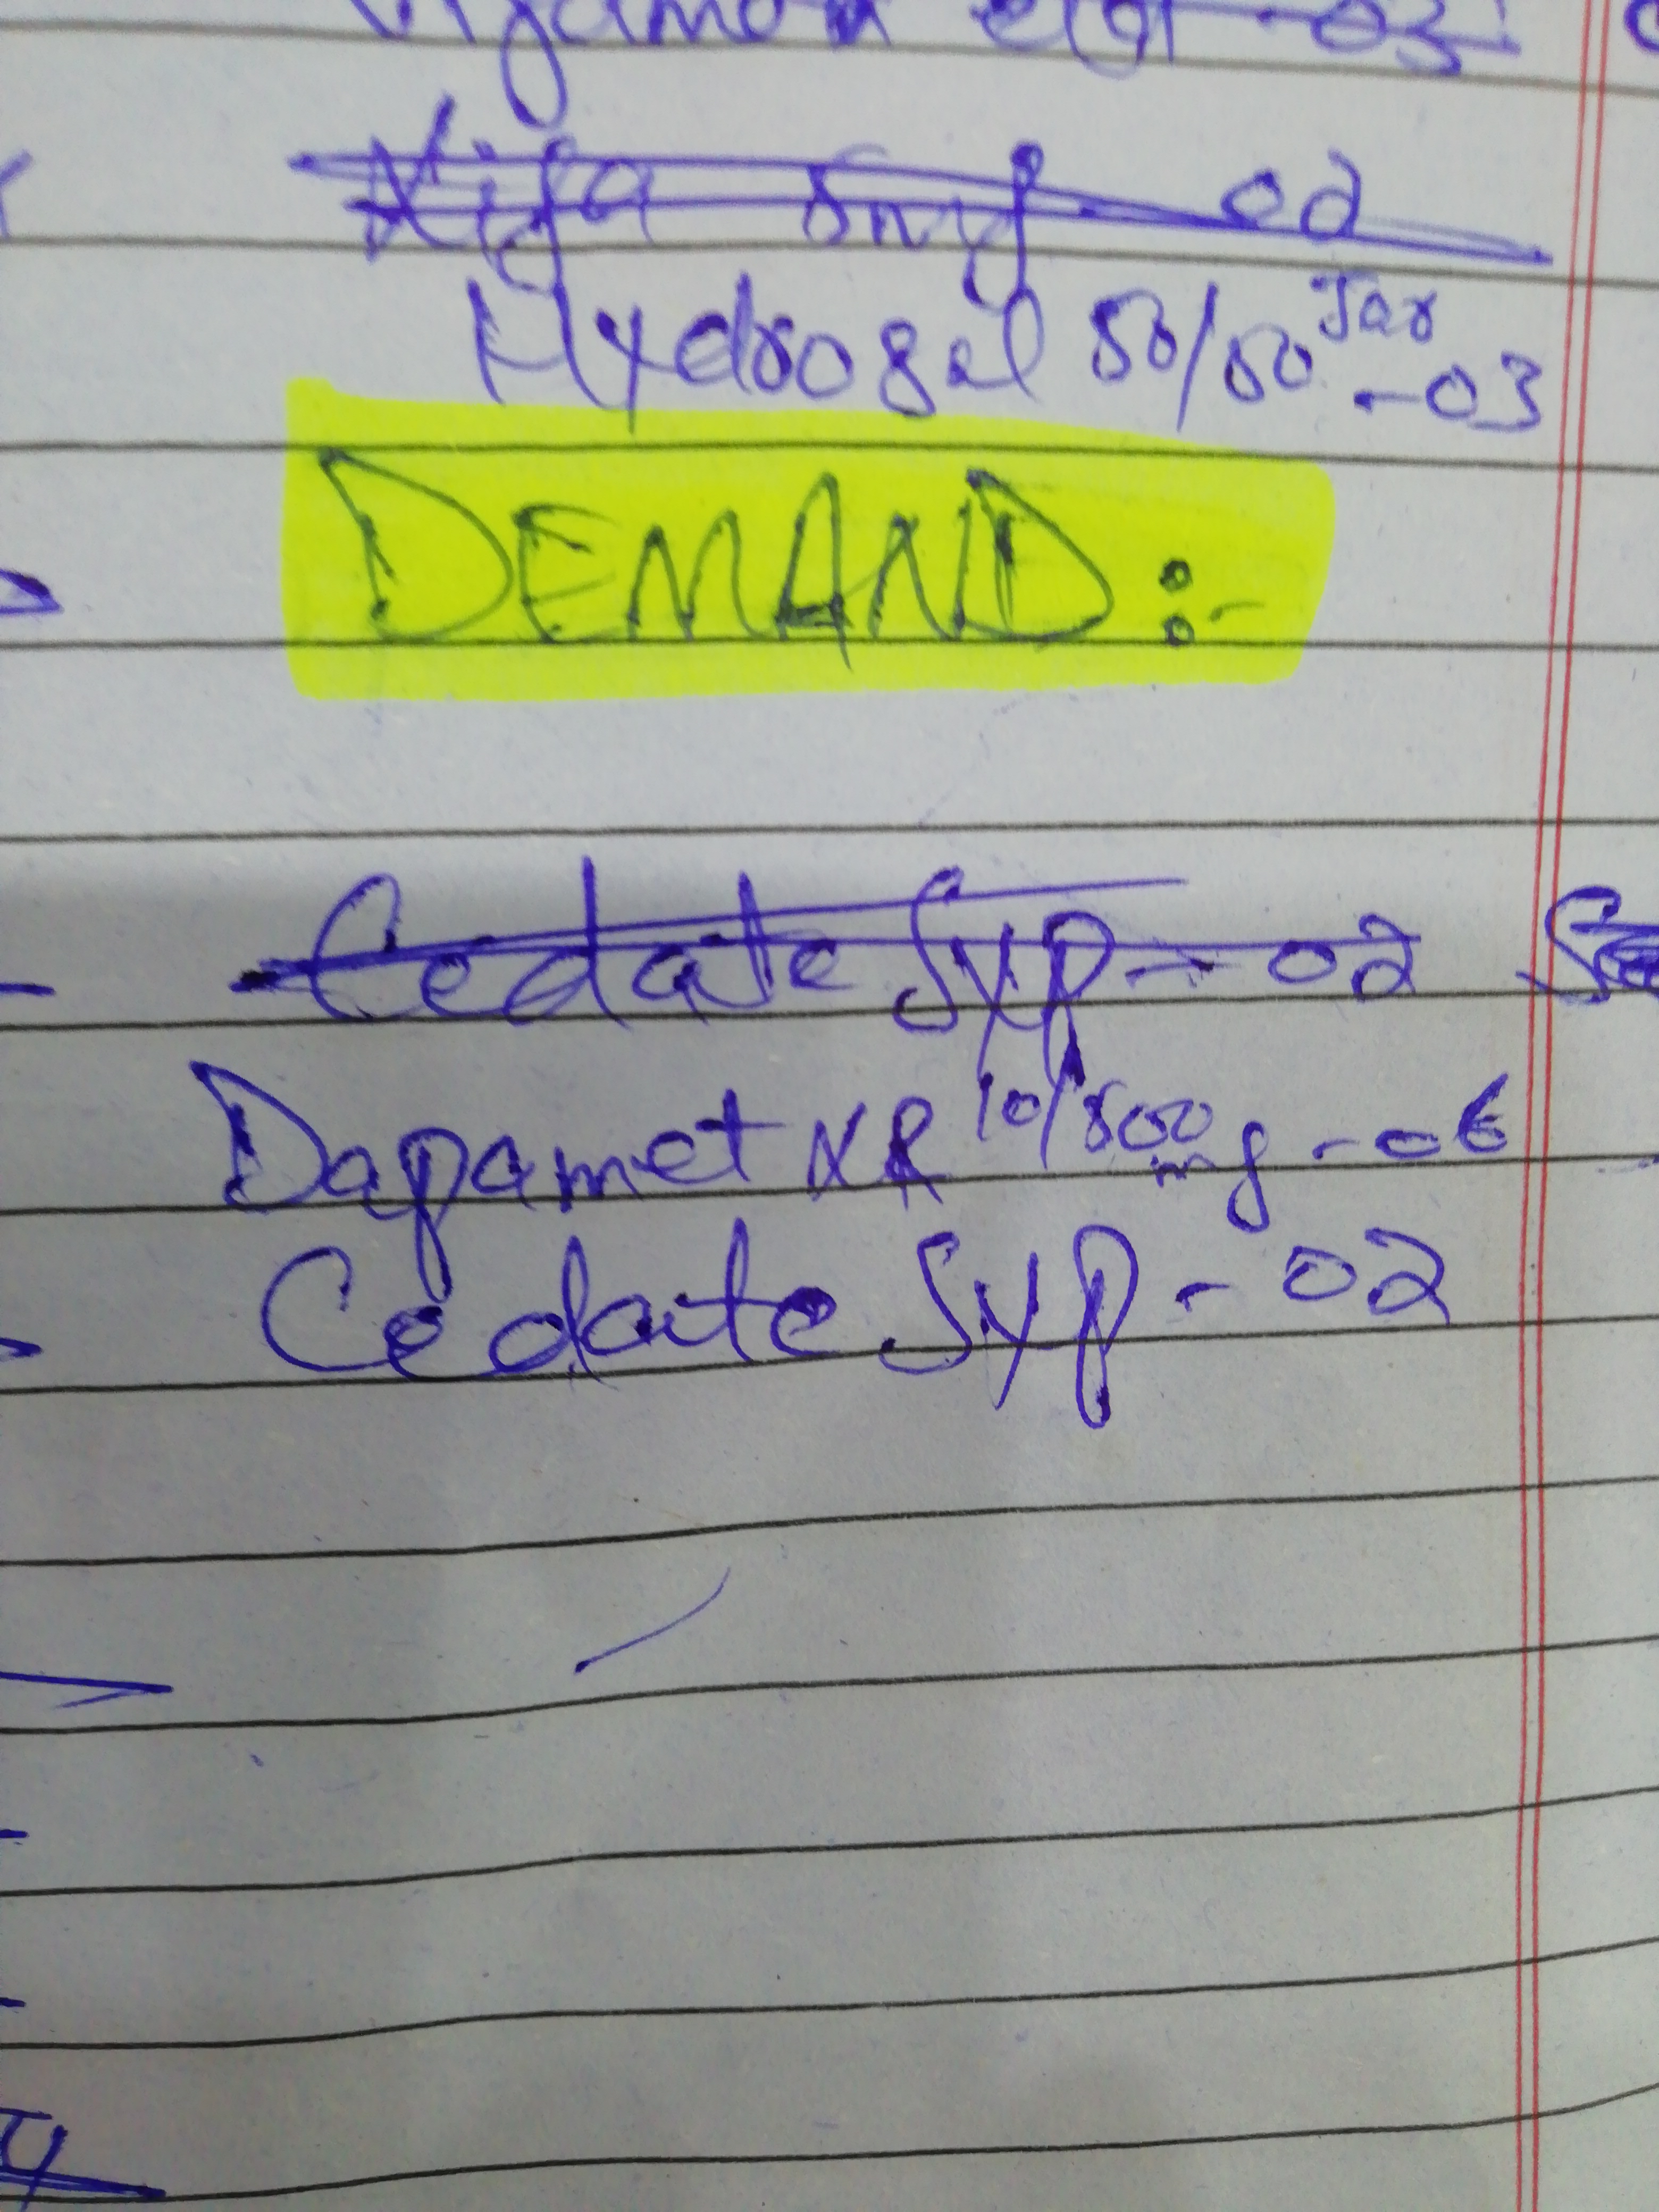 -03
Xiga 5mg 02
Hydrogel 50/50 Jar -03
DEMAND:-
Cedate Syp - 02
Dapamet XR 10/500mg - 06
Cedate Syp - 02